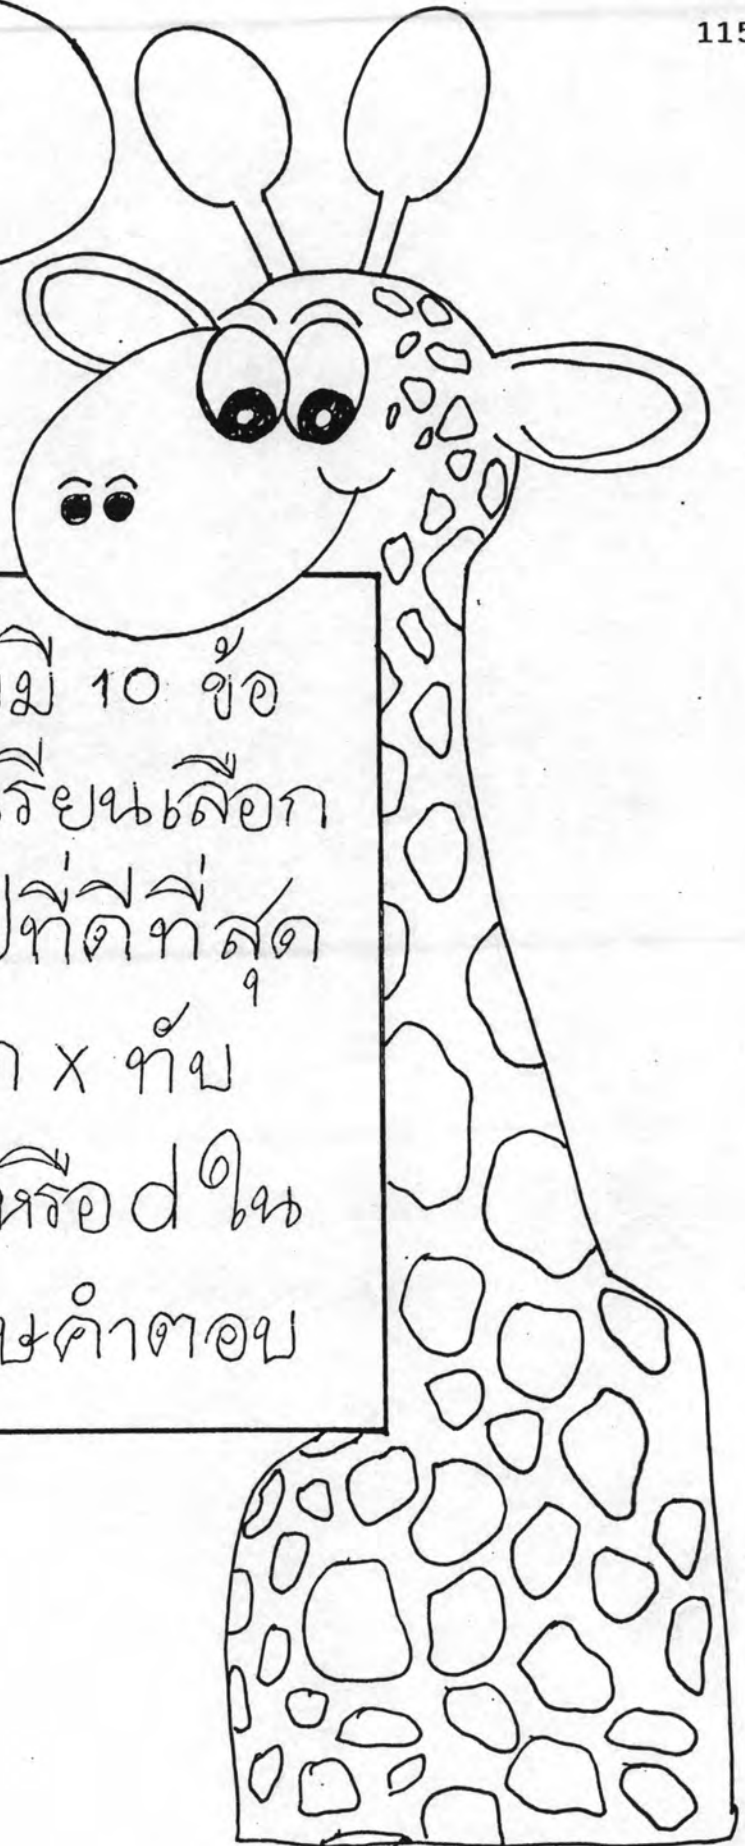 115
มี 10 ข้อ
เรียนเลือก
ที่ดีที่สุด
x ทับ
หรือ d ใน
คำตอบ